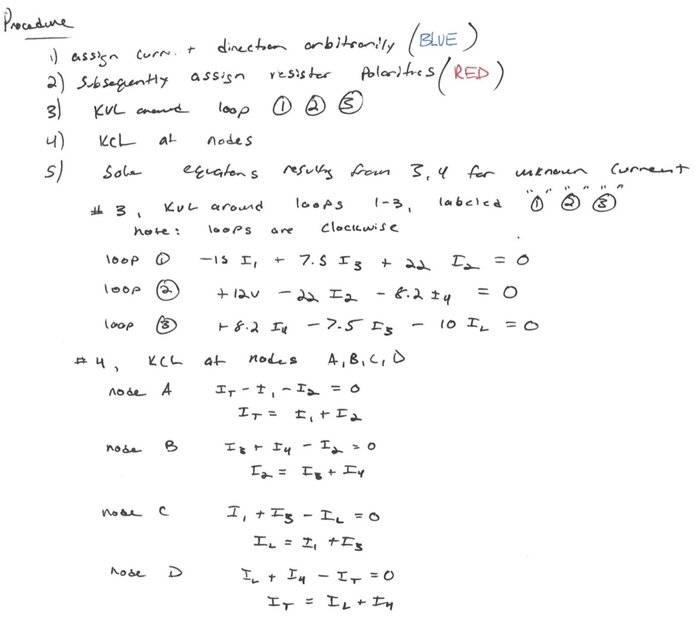 Procedure
1) assign current direction arbitrarily (BLUE)
2) Subsequently assign resistor polarities (RED)
3) KVL around loop ① ② ③
4) KCL at nodes
5) Solve equations resulting from 3, 4 for unknown current
#3, KVL around loops 1-3, labeled "①" "②" "③"
note: loops are clockwise
loop ① -15 I₁ + 7.5 I₃ + 22 I₂ = 0
loop ② +12V - 22 I₂ - 8.2 I₄ = 0
loop ③ +8.2 I₄ - 7.5 I₃ - 10 I_L = 0
#4, KCL at nodes A, B, C, D
node A I_T - I₁ - I₂ = 0
I_T = I₁ + I₂
node B I₃ + I₄ - I₂ = 0
I₂ = I₃ + I₄
node C I₁ + I₃ - I_L = 0
I_L = I₁ + I₃
node D I_L + I₄ - I_T = 0
I_T = I_L + I₄